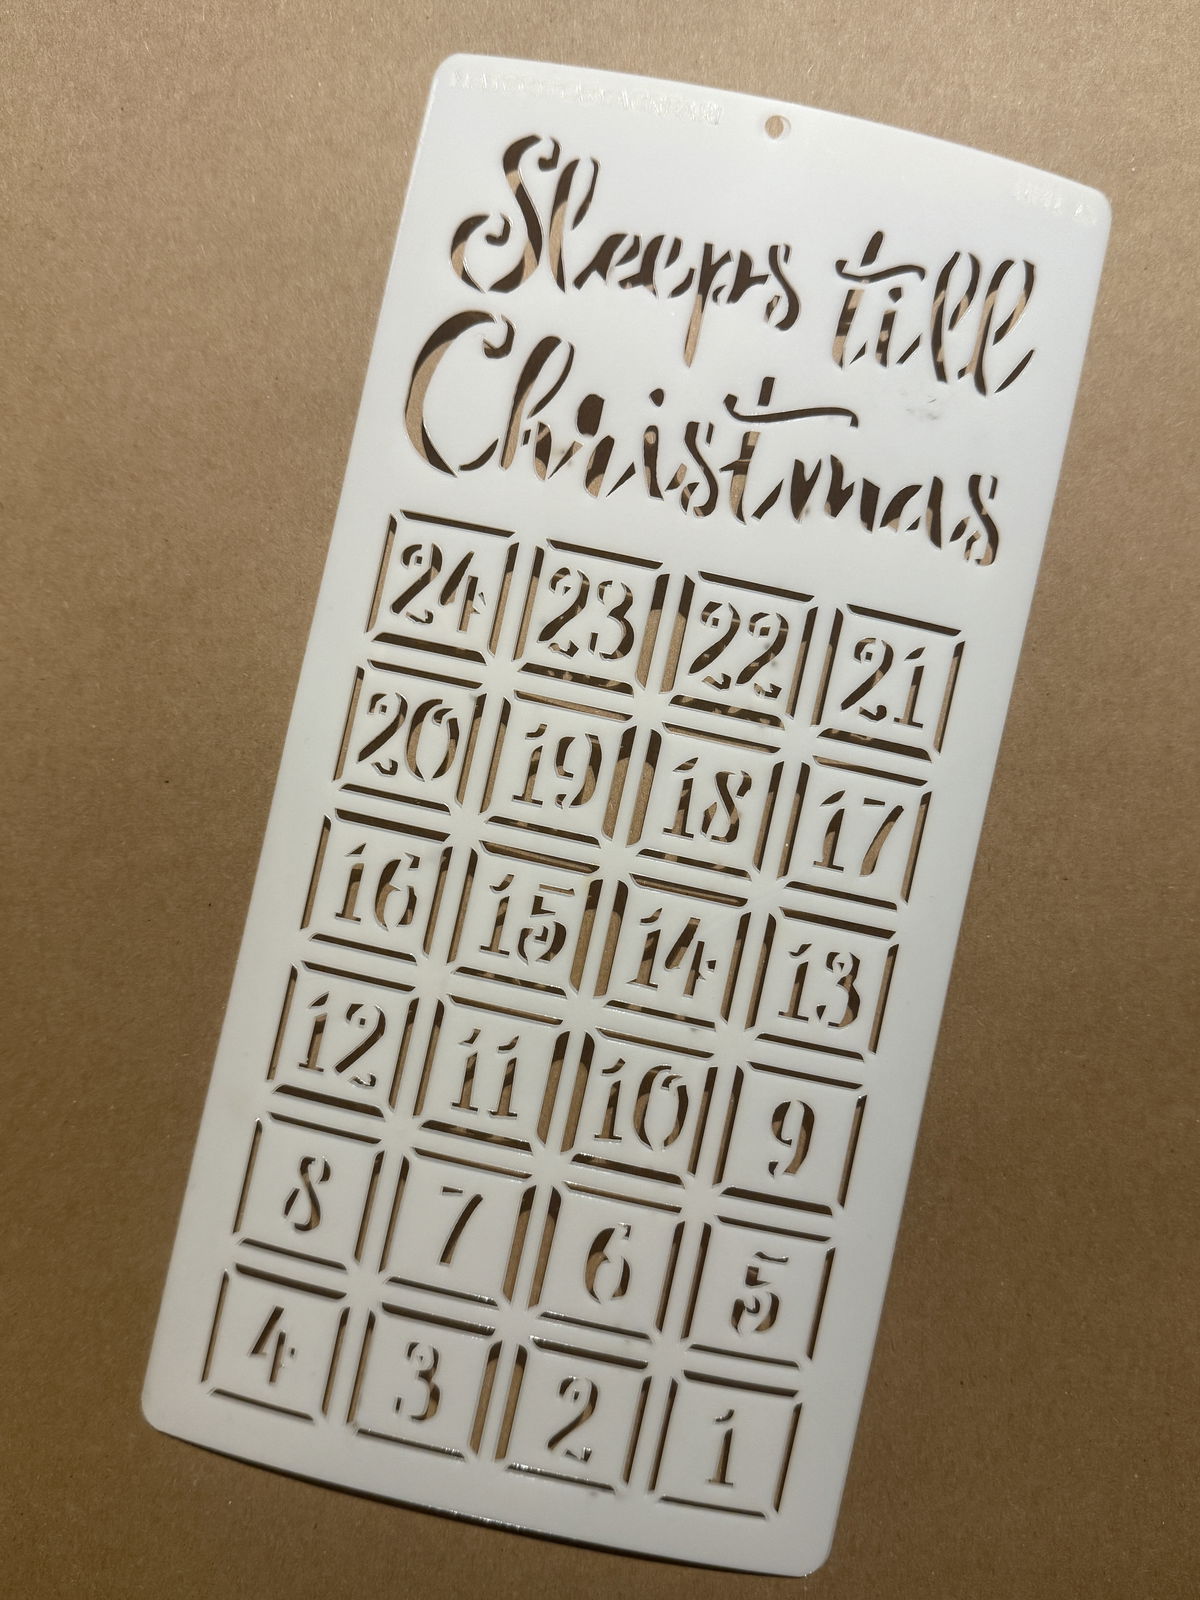 Sleeps till
Christmas
24 23 22 21
20 19 18 17
16 15 14 13
12 11 10 9
8 7 6 5
4 3 2 1